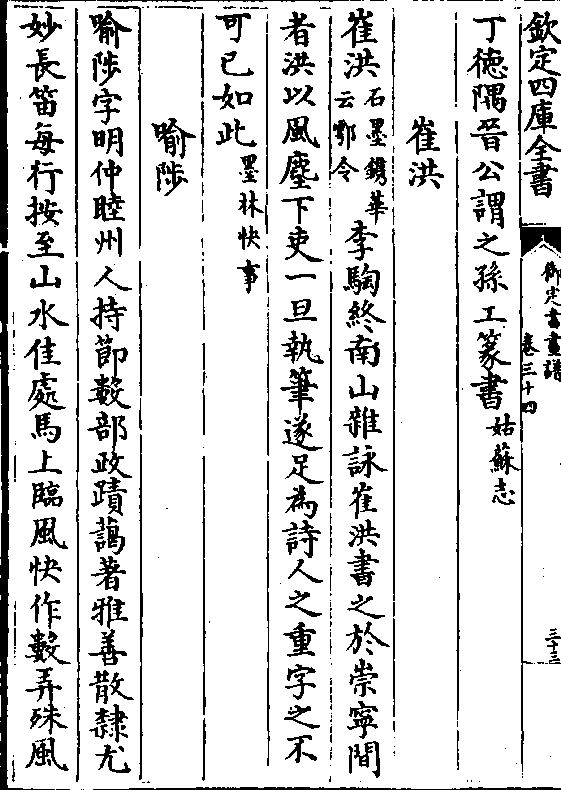 欽定四庫全書
御定書畫譜
卷三十四
三十三
丁徳隅晉公謂之孫工篆書姑蘇志
崔洪
崔洪石墨鐫華云鄠令李騊終南山雜詠崔洪書之於崇寧間
者洪以風塵下吏一旦執筆遂足為詩人之重字之不
可已如此墨林快事
喻陟
喻陟字明仲睦州人持節數部政蹟藹著雅善散隸尤
妙長笛每行按至山水佳處馬上臨風快作數弄殊風